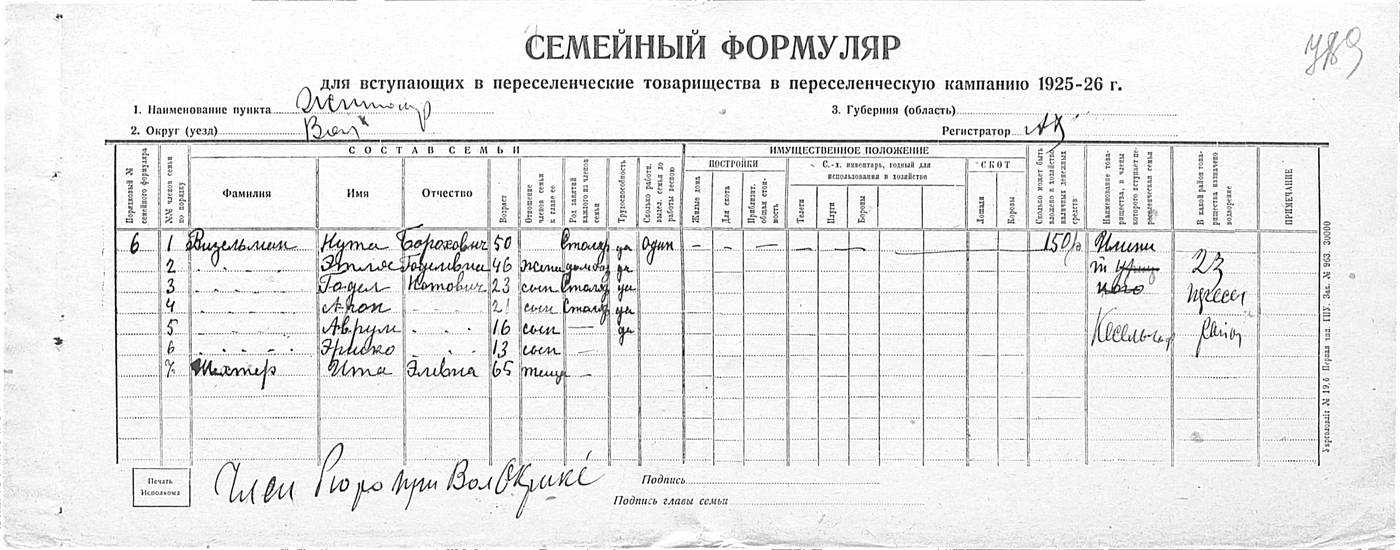 789
СЕМЕЙНЫЙ ФОРМУЛЯР
для вступающих в переселенческие товарищества в переселенческую кампанию 1925-26 г.
1. Наименование пункта Житомир
3. Губерния (область)
2. Округ (уезд) Вол
Регистратор
СОСТАВ СЕМЬИ
ИМУЩЕСТВЕННОЕ ПОЛОЖЕНИЕ
Порядковый № семейного формуляра
№№ членов семьи по порядку
Фамилия
Имя
Отчество
Возраст
Отношение членов семьи к главе ее
Род занятий каждого из членов семьи
Трудоспособность
Сколько работн. выдел. семья до работы весною
ПОСТРОЙКИ
Жилые дома
Для скота
Приблизит. общая стоимость
С.-х. инвентарь, годный для использования в хозяйстве
Телеги
Плуги
Бороны
СКОТ
Лошади
Коровы
Сколько может быть вложено в хозяйство наличных денежных средств
Наименование товарищества, в члены которого вступает переселенческая семья
В какой район товарищества назначено водворение
ПРИМЕЧАНИЕ
6 1 Визельман Нута Борохович 50 Столяр да один — — — — — — 150 р. Имени
2 Этля Годелевна 46 жена да 23
3 Годел Нотович 23 сын Столяр да
4 Арон 21 сын Столяр да
5 Аврум 16 сын — да район
6 13 сын —
7 Шехтер Ита Элевна 65 теща —
Печать Исполкома
Член бюро при
Подпись
Подпись главы семьи
Укрголовліт № 19,6 Первая тип. ГПУ. Зак. № 963. 30000